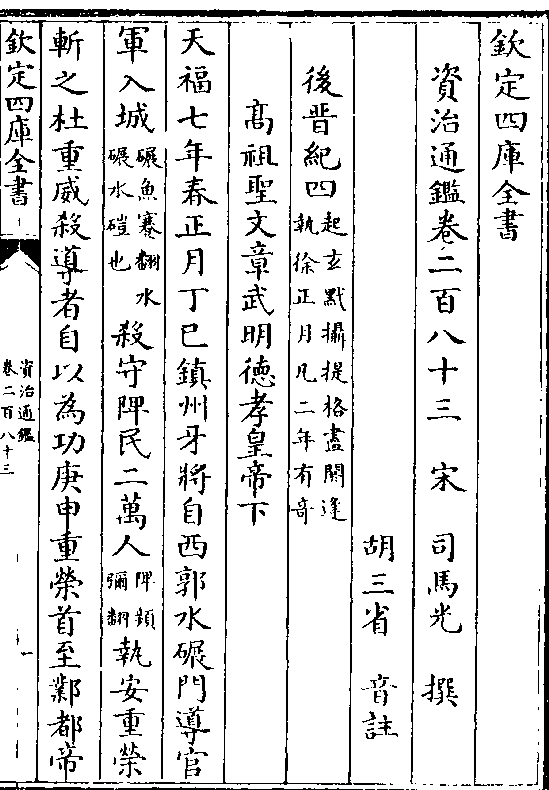 欽定四庫全書
資治通鑑卷二百八十三　宋　司馬光　撰
胡三省　音註
後晉紀四起玄黓攝提格盡閼逢執徐正月凡二年有奇
髙祖聖文章武明徳孝皇帝下
天福七年春正月丁巳鎮州牙將自西郭水碾門導官
軍入城碾魚蹇翻水碾水磑也殺守陴民二萬人陴頻彌翻執安重榮
斬之杜重威殺導者自以為功庚申重榮首至鄴都帝
欽定四庫全書
資治通鑑
卷二百八十三
一